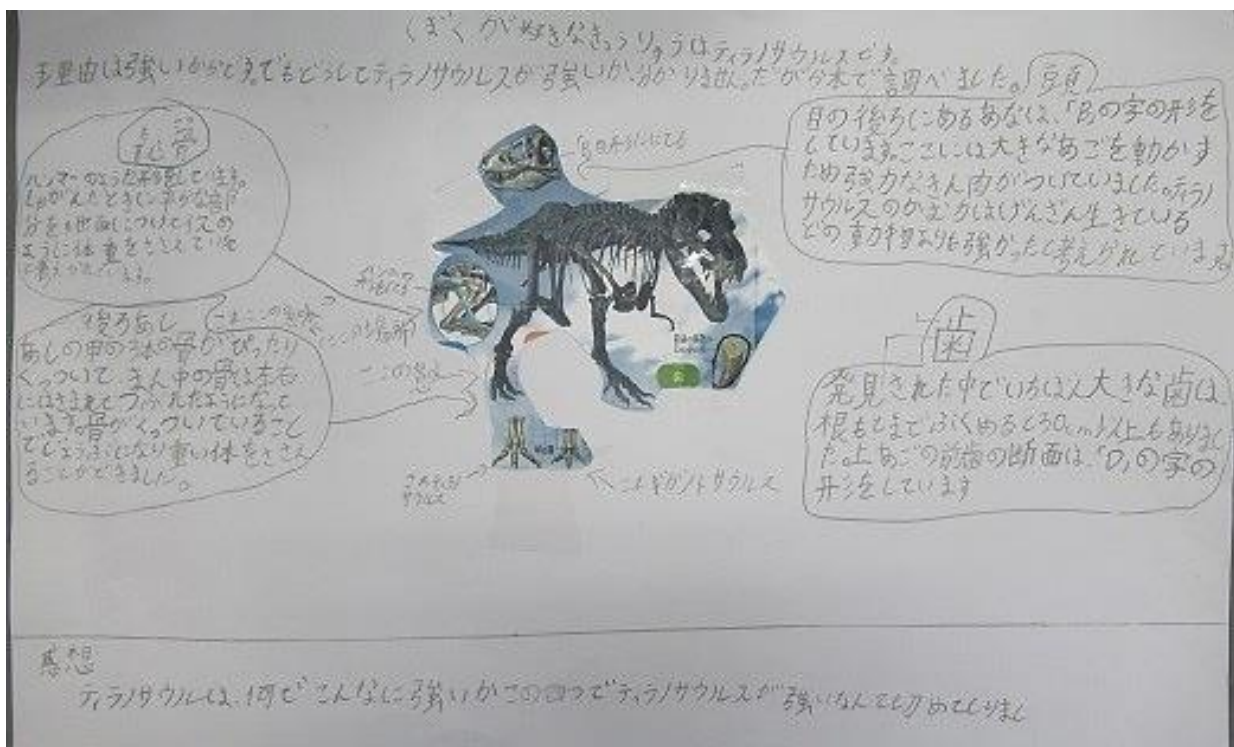 ぼくが好きなきょうりゅうはティラノサウルスです。
理由は強いからです。でもどうしてティラノサウルスが強いか、分かりません。だから本で調べました。
頭
目の後ろにあるあなは、「B」の字の形を
しています。ここには大きなあごを動かす
ため強力なきん肉がついていました。ティラ
サウルスのかむ力はげんざい生きている
どの動物よりも強かったと考えられています
恥骨
ような形をしています。
しゃがんだときに平らな部
分を地面につけて
ように体重をささえていた
と考えられています。
後ろあし
あしの甲の3本の骨がぴったり
くっついて、まん中の骨は左右
にはさまれてつぶれたようになって
います。骨がくっついていること
でじょうぶになり重い体をささえ
ることができました。
ここの部分
歯
発見された中でいちばん大きな歯は、
根もとまでふくめると30cm以上もありまし
た。上あごの前歯の断面は、「D」の字の
形をしています
ティラノ
サウルス
ギガノトサウルス
感想
ティラノサウルは、何でこんなに強いかこの四つでティラノサウルスが強いなんて